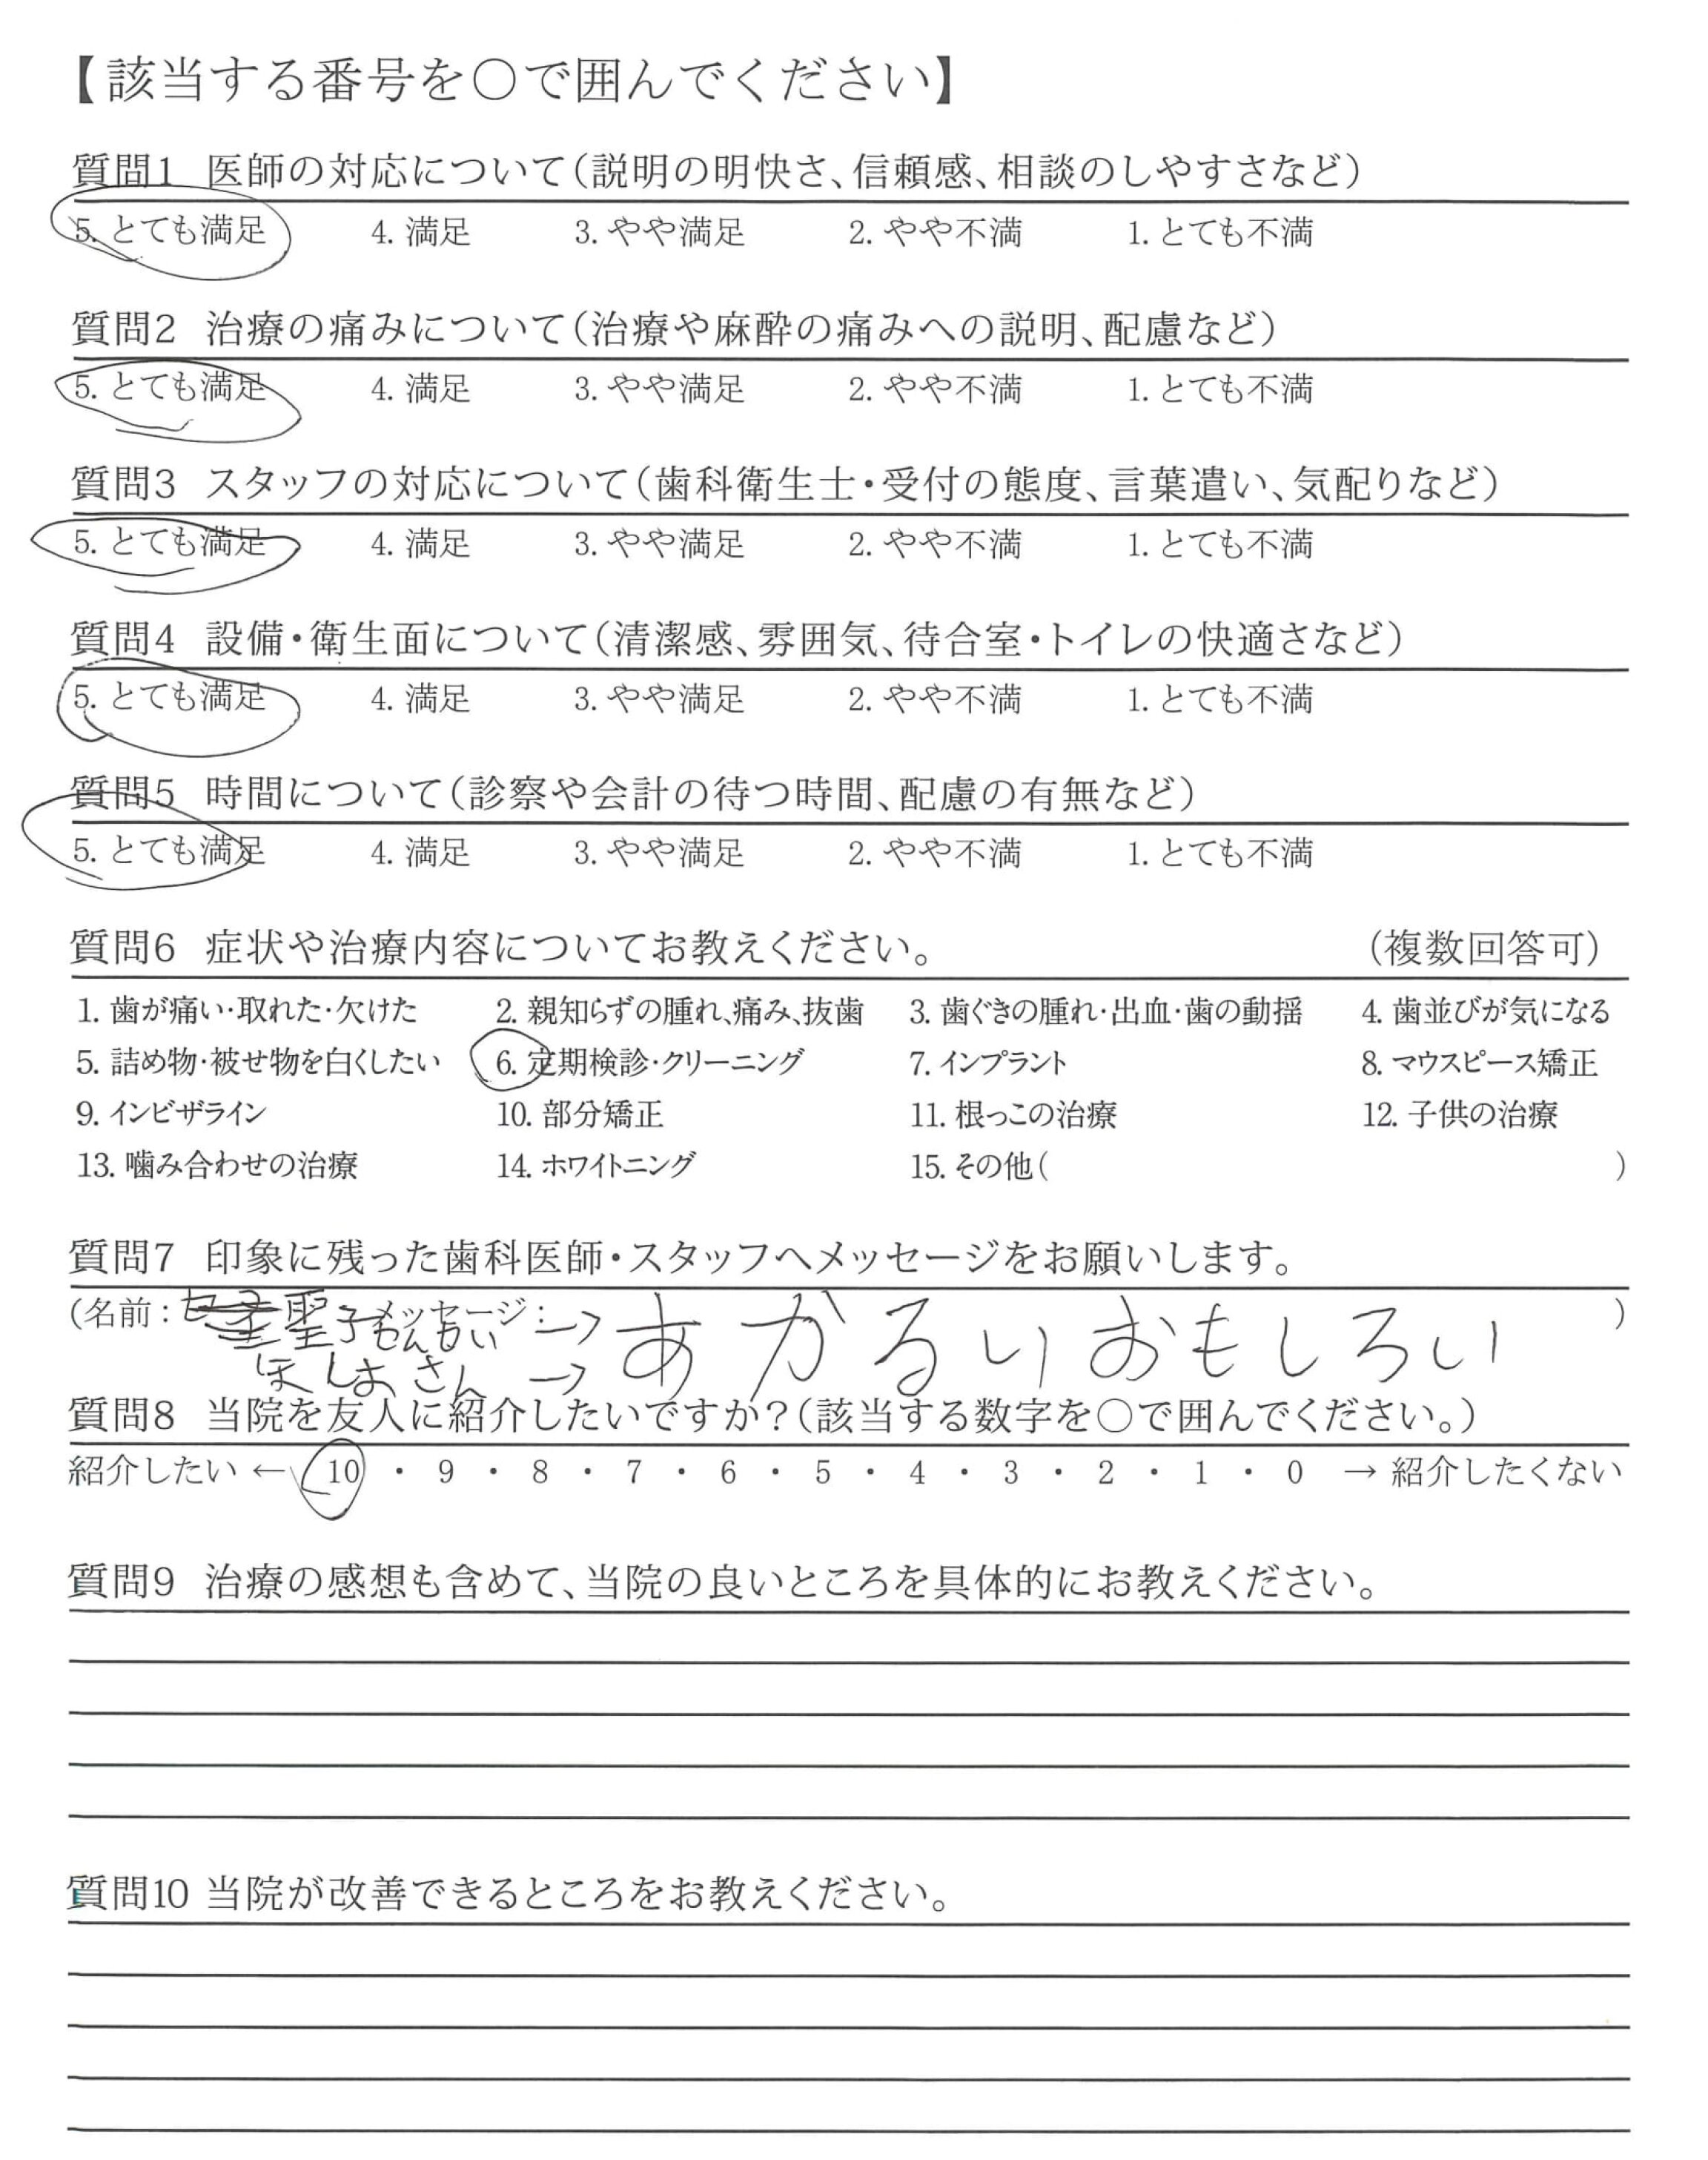 【該当する番号を〇で囲んでください】
質問1 医師の対応について(説明の明快さ、信頼感、相談のしやすさなど)
5. とても満足 4. 満足 3. やや満足 2. やや不満 1. とても不満
質問2 治療の痛みについて(治療や麻酔の痛みへの説明、配慮など)
5. とても満足 4. 満足 3. やや満足 2. やや不満 1. とても不満
質問3 スタッフの対応について(歯科衛生士・受付の態度、言葉遣い、気配りなど)
5. とても満足 4. 満足 3. やや満足 2. やや不満 1. とても不満
質問4 設備・衛生面について(清潔感、雰囲気、待合室・トイレの快適さなど)
5. とても満足 4. 満足 3. やや満足 2. やや不満 1. とても不満
質問5 時間について(診察や会計の待つ時間、配慮の有無など)
5. とても満足 4. 満足 3. やや満足 2. やや不満 1. とても不満
質問6 症状や治療内容についてお教えください。 (複数回答可)
1. 歯が痛い・取れた・欠けた 2. 親知らずの腫れ、痛み、抜歯 3. 歯ぐきの腫れ・出血・歯の動揺 4. 歯並びが気になる
5. 詰め物・被せ物を白くしたい 6. 定期検診・クリーニング 7. インプラント 8. マウスピース矯正
9. インビザライン 10. 部分矯正 11. 根っこの治療 12. 子供の治療
13. 噛み合わせの治療 14. ホワイトニング 15. その他( )
質問7 印象に残った歯科医師・スタッフへメッセージをお願いします。
(名前: 聖子せんせい メッセージ: → あかるい おもしろい )
ほしおさん →
質問8 当院を友人に紹介したいですか?(該当する数字を〇で囲んでください。)
紹介したい ← 10 ・ 9 ・ 8 ・ 7 ・ 6 ・ 5 ・ 4 ・ 3 ・ 2 ・ 1 ・ 0 → 紹介したくない
質問9 治療の感想も含めて、当院の良いところを具体的にお教えください。
質問10 当院が改善できるところをお教えください。